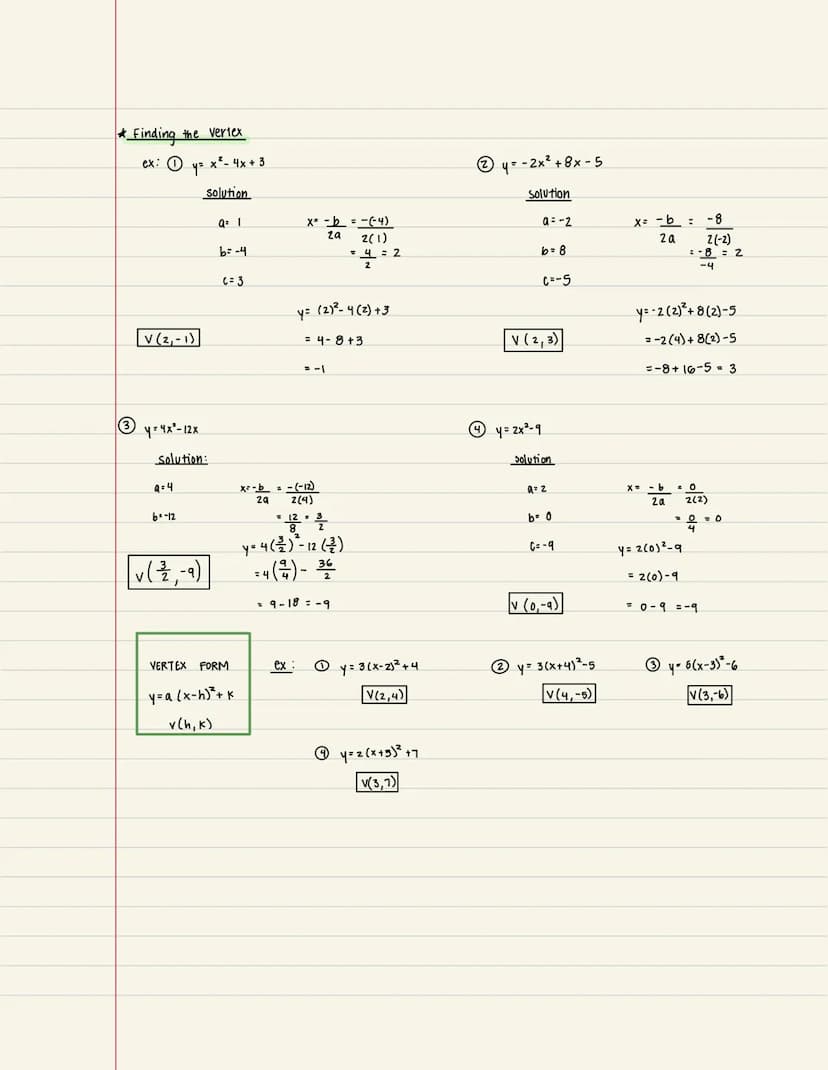 * Finding the vertex
ex: ① y= x²- 4x + 3
solution
a= 1
b= -4
c= 3
x= -b/2a = -(-4)/2(1)
= 4/2 = 2
y= (2)²- 4(2)+3
= 4- 8+3
= -1
V(2,-1)
② y= -2x² + 8x - 5
solution
a= -2
b= 8
c= -5
x= -b/2a = -8/2(-2)
= -8/-4 = 2
y= -2(2)²+ 8(2)-5
= -2(4)+ 8(2)-5
= -8+ 16-5 = 3
V(2,3)
③ y= 4x²- 12x
solution:
a= 4
b= -12
x= -b/2a = -(-12)/2(4)
= 12/8 = 3/2
y= 4(3/2)²- 12(3/2)
= 4(9/4) - 36/2
= 9-18 = -9
V(3/2,-9)
④ y= 2x²-9
solution
a= 2
b= 0
c= -9
x= -b/2a = 0/2(2)
= 0/4 = 0
y= 2(0)²-9
= 2(0)-9
= 0-9 = -9
V(0,-9)
VERTEX FORM
y=a (x-h)²+ k
V(h,k)
ex: ① y= 3(x-2)²+4
V(2,4)
② y= 3(x+4)²-5
V(4,-5)
③ y= 5(x-3)²-6
V(3,-6)
④ y=2(x+3)²+7
V(3,7)